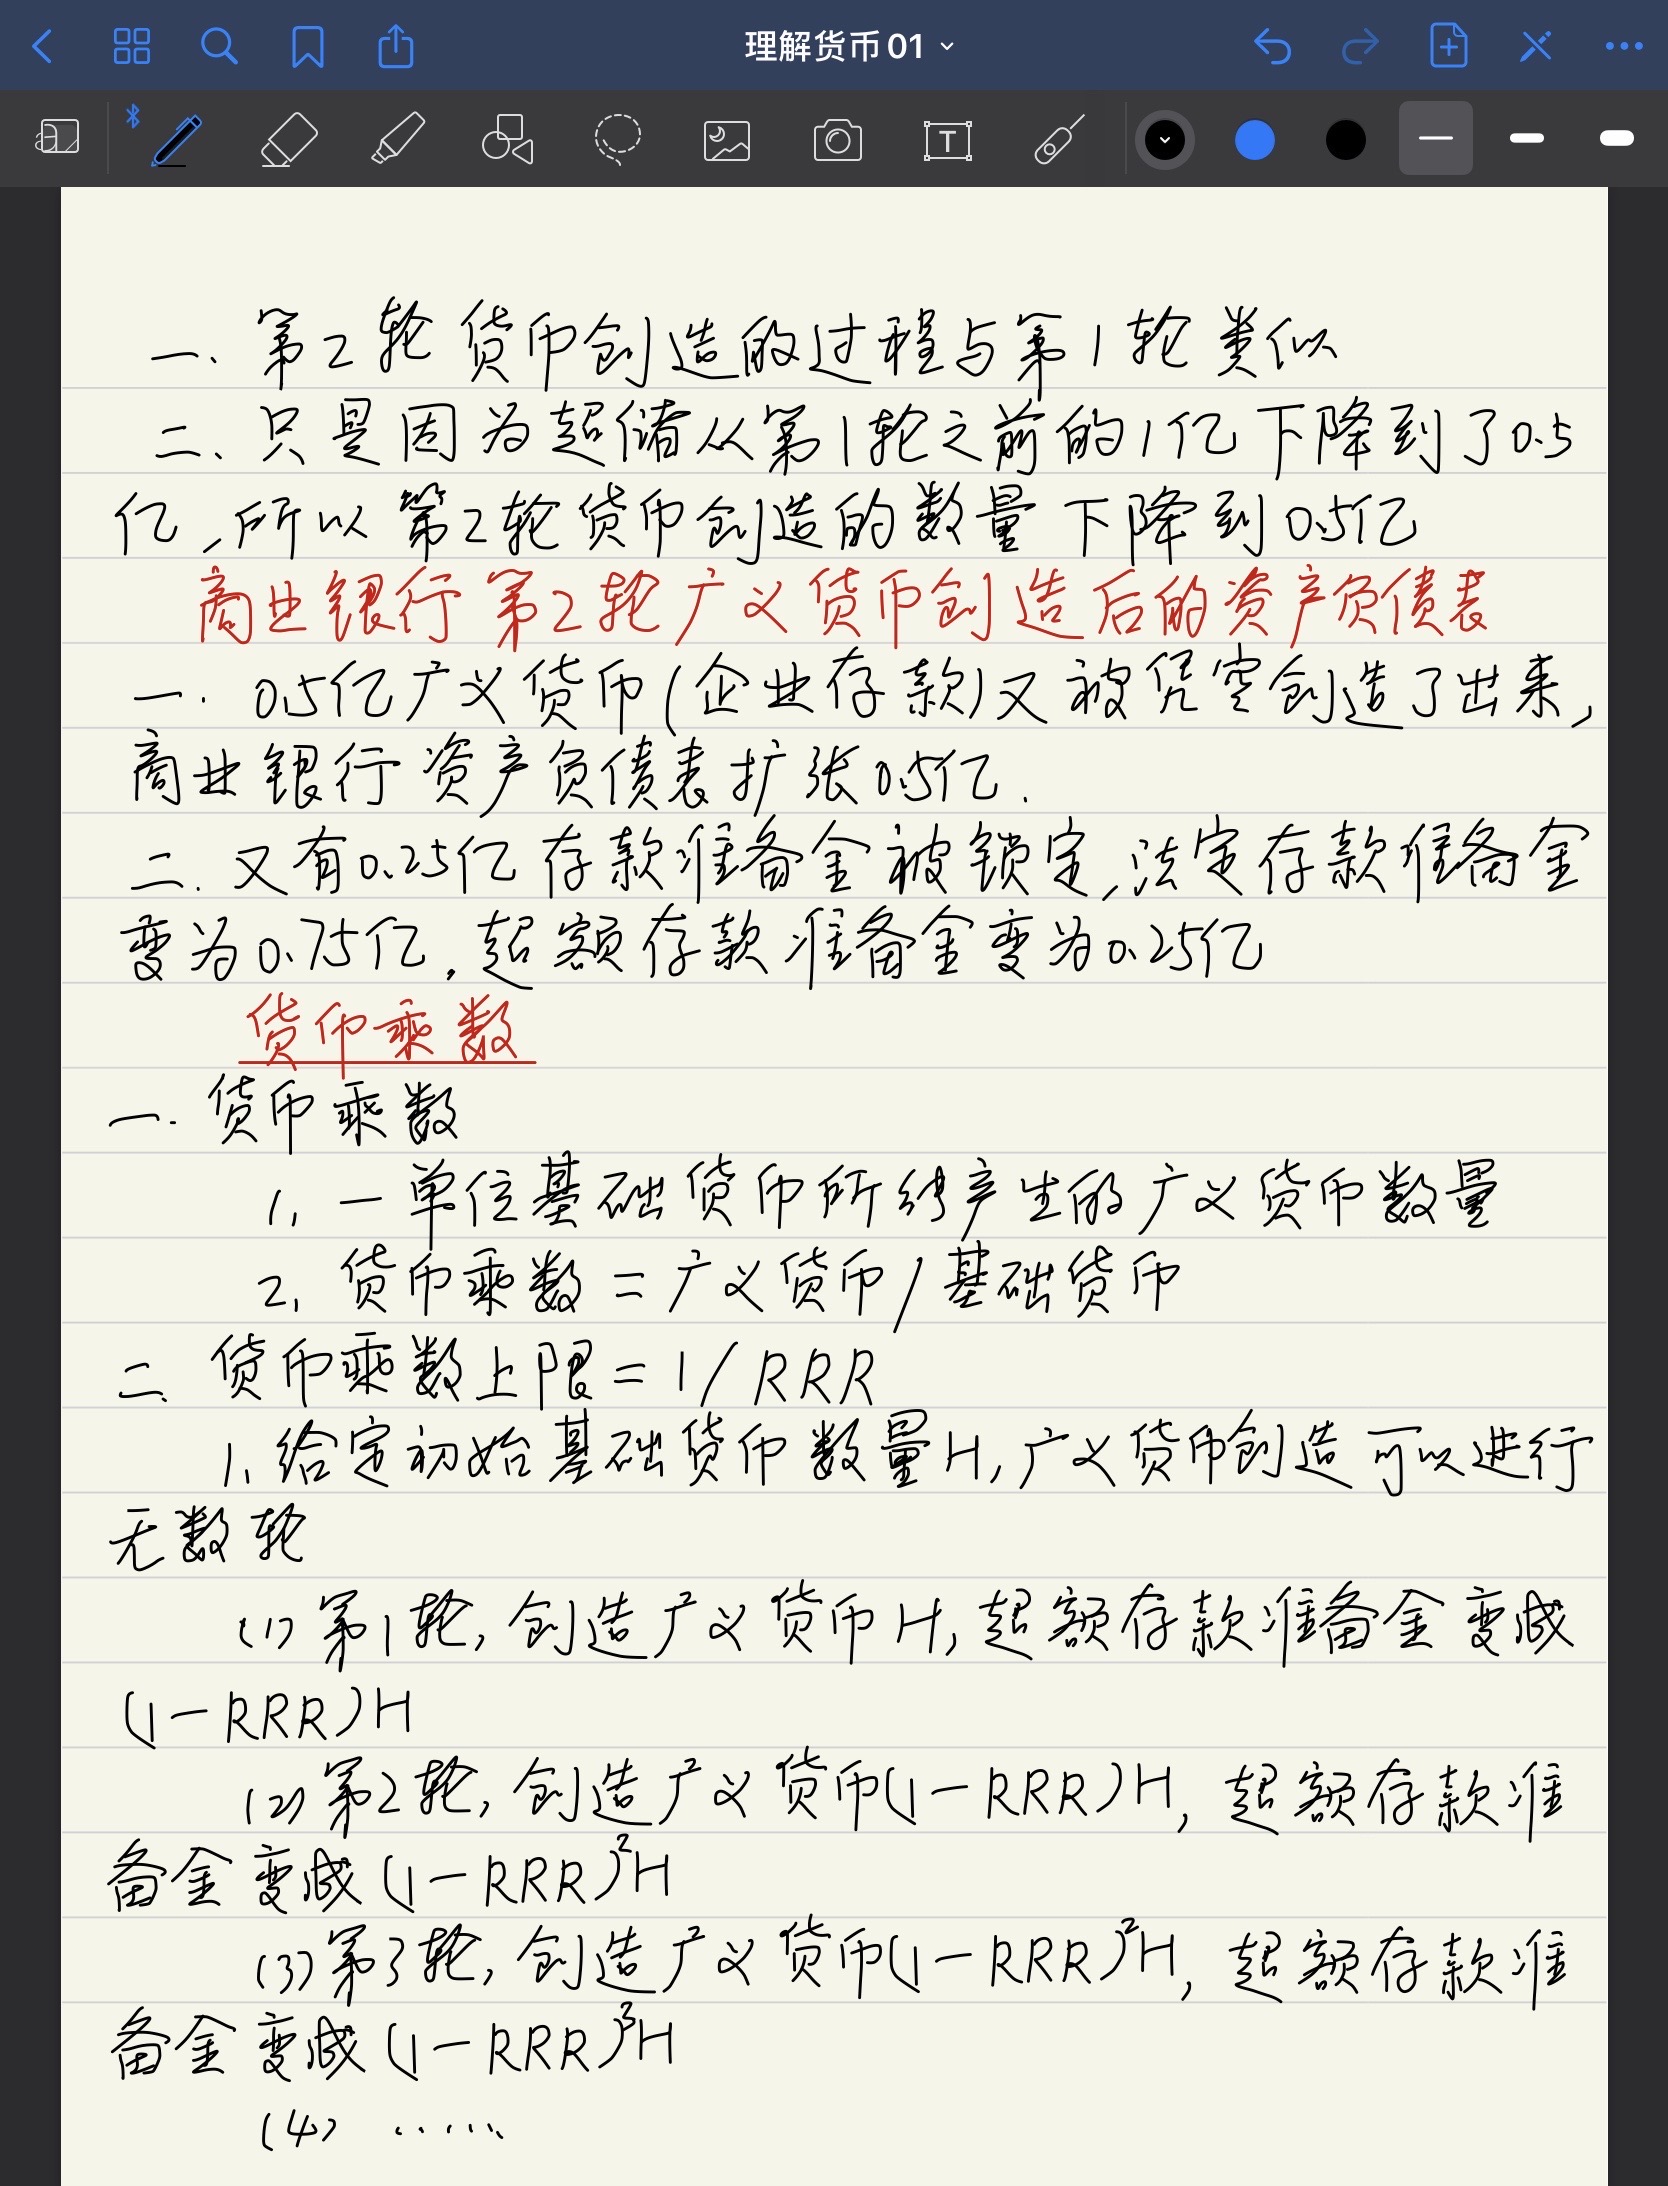 理解货币01
一.第2轮货币创造的过程与第1轮类似
二、只是因为超储从第1轮之前的1亿下降到了0.5
亿,所以第2轮货币创造的数量下降到0.5亿
商业银行第2轮广义货币创造后的资产负债表
一.0.5亿广义货币(企业存款)又被凭空创造了出来,
商业银行资产负债表扩张0.5亿.
二.又有0.25亿存款准备金被锁定,法定存款准备金
变为0.75亿,超额存款准备金变为0.25亿
货币乘数
一.货币乘数
1.一单位基础货币所能产生的广义货币数量
2.货币乘数=广义货币/基础货币
二.货币乘数上限=1/RRR
1.给定初始基础货币数量H,广义货币创造可以进行
无数轮
(1)第1轮,创造广义货币H,超额存款准备金变成
(1-RRR)H
(2)第2轮,创造广义货币(1-RRR)H,超额存款准
备金变成(1-RRR)²H
(3)第3轮,创造广义货币(1-RRR)²H,超额存款准
备金变成(1-RRR)³H
(4)……